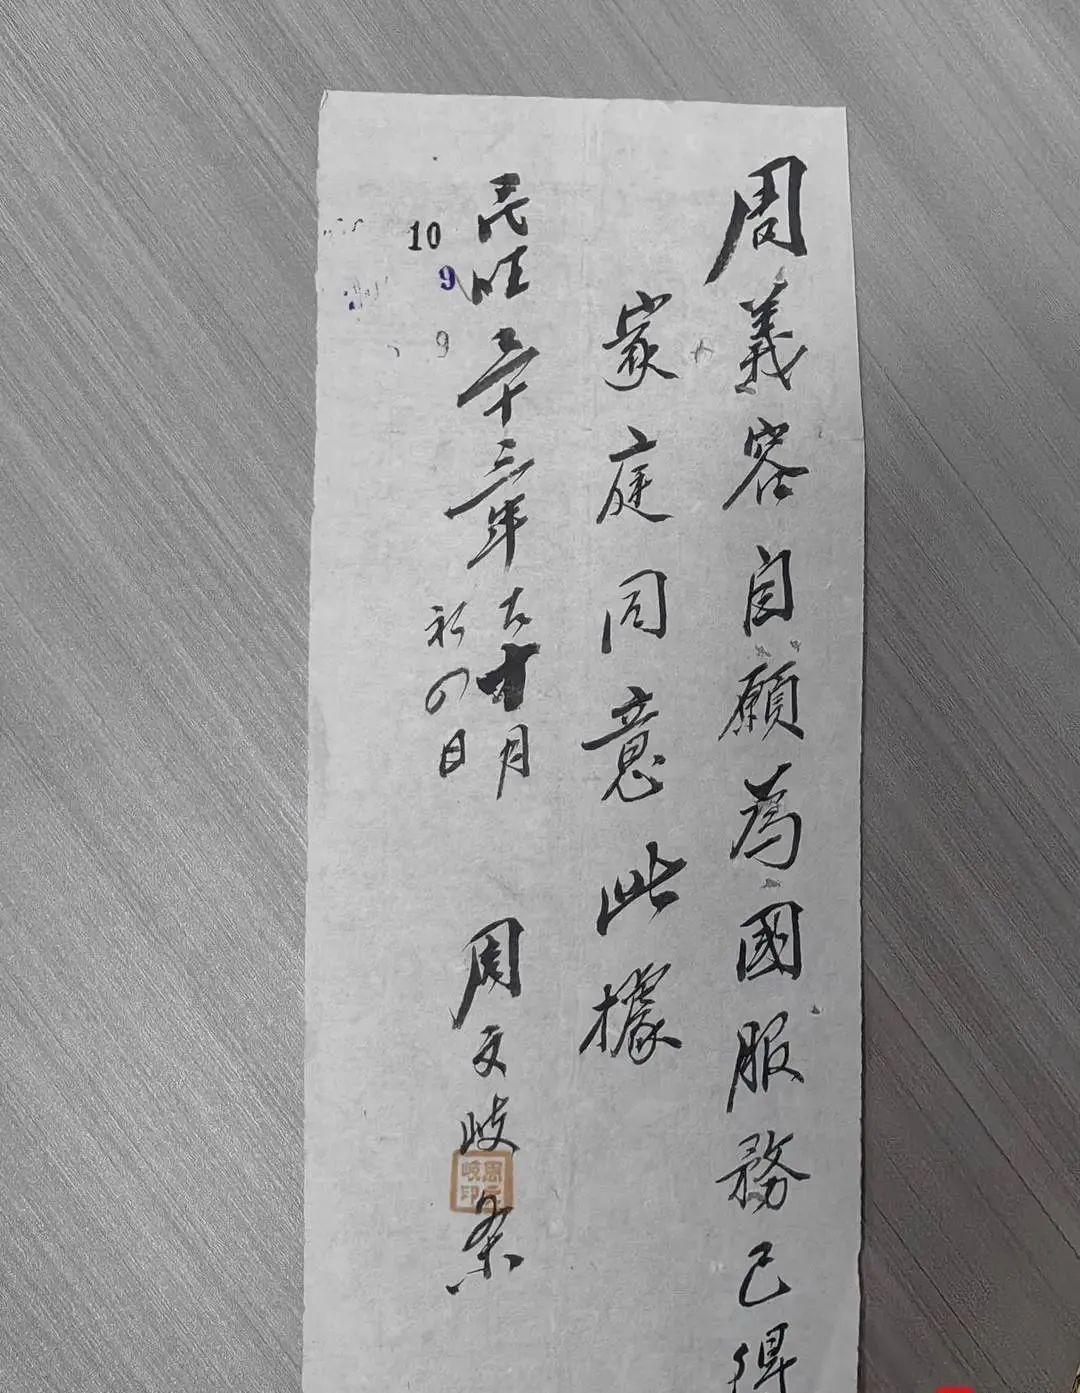 周義容自願為國服務已得
家庭同意此據
民囯三十三年古十月
初四日
周文岐条
周文岐印
10
9
9